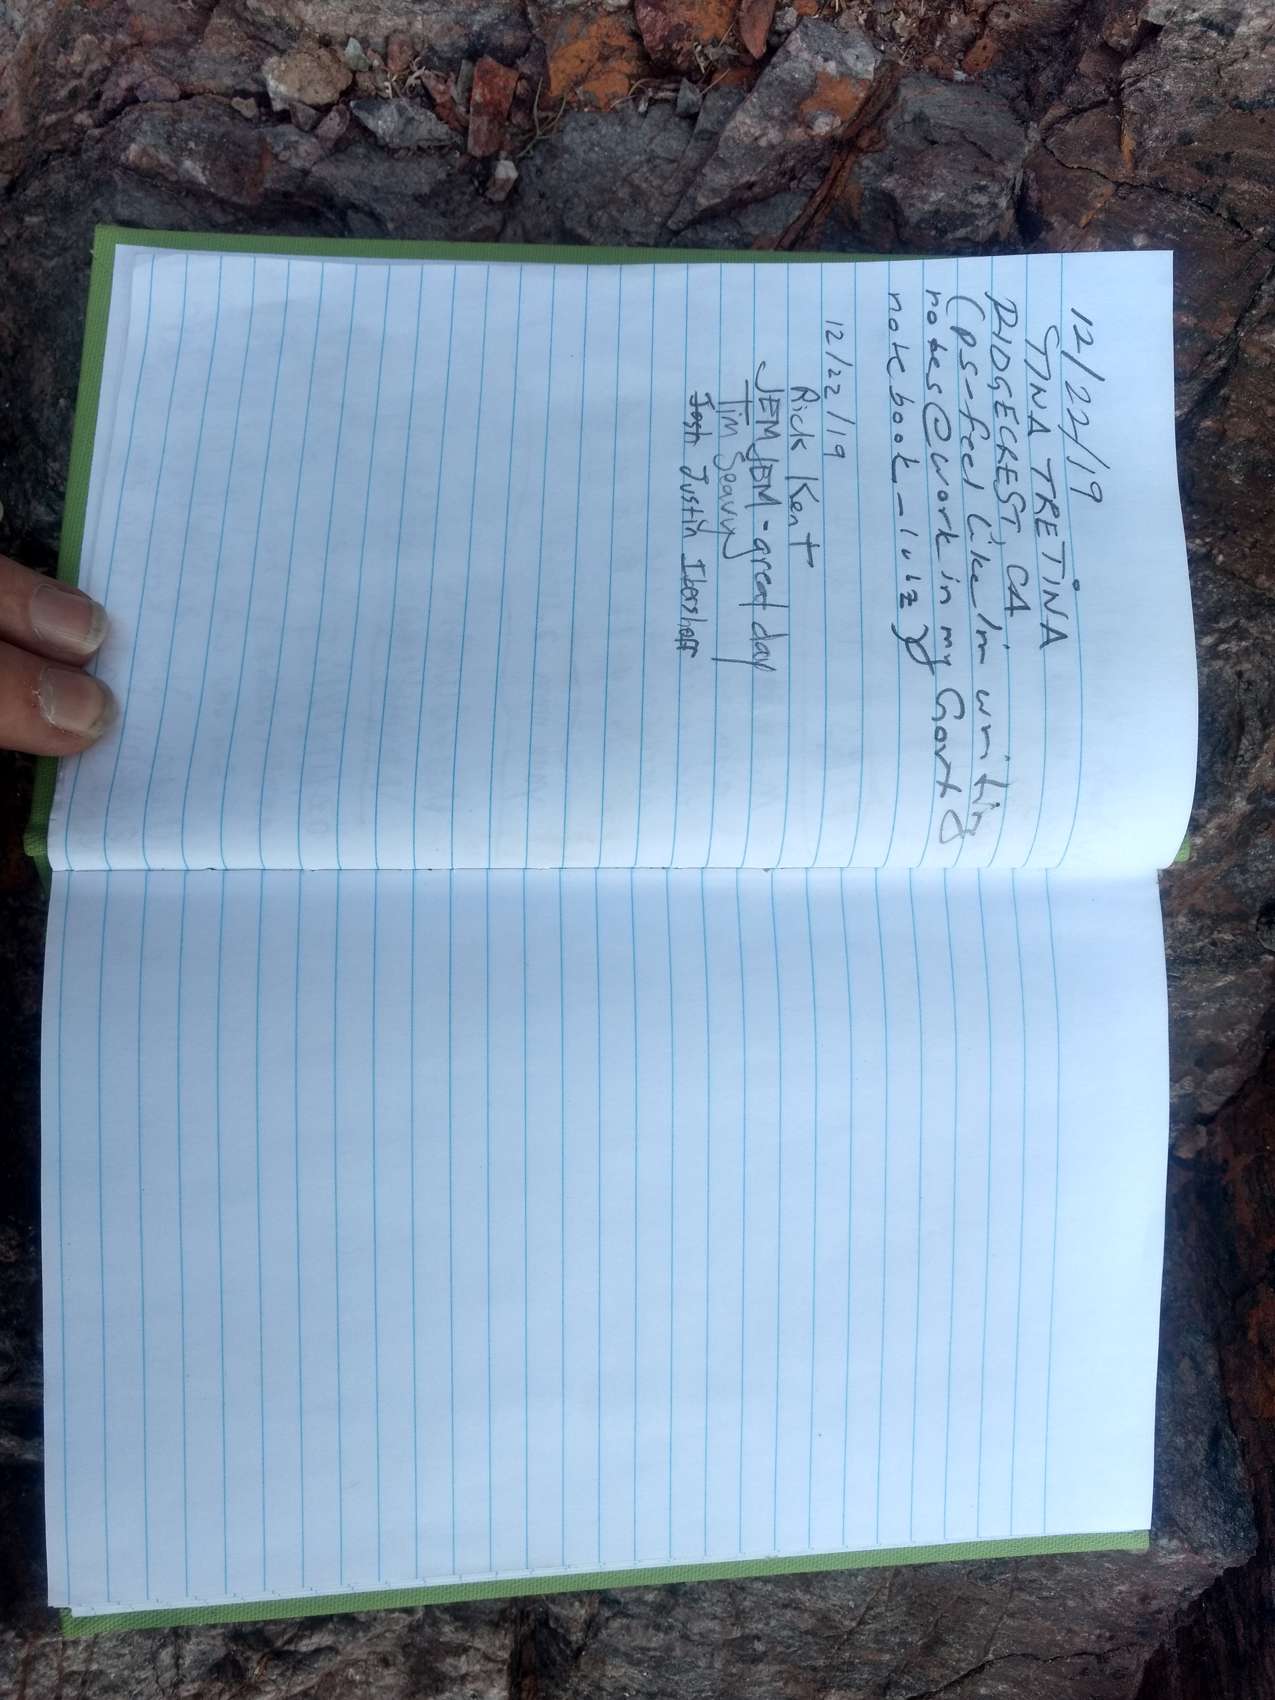 12/22/19
TINA TRETINA
RIDGECREST, CA
(ps-feel like I'm writing
notes @ work in my Govt
notebook - lulz)
12/22/19
Rick Kent
JEM JEM - great day
Tim Seavy
Josh Justin Ibershoff